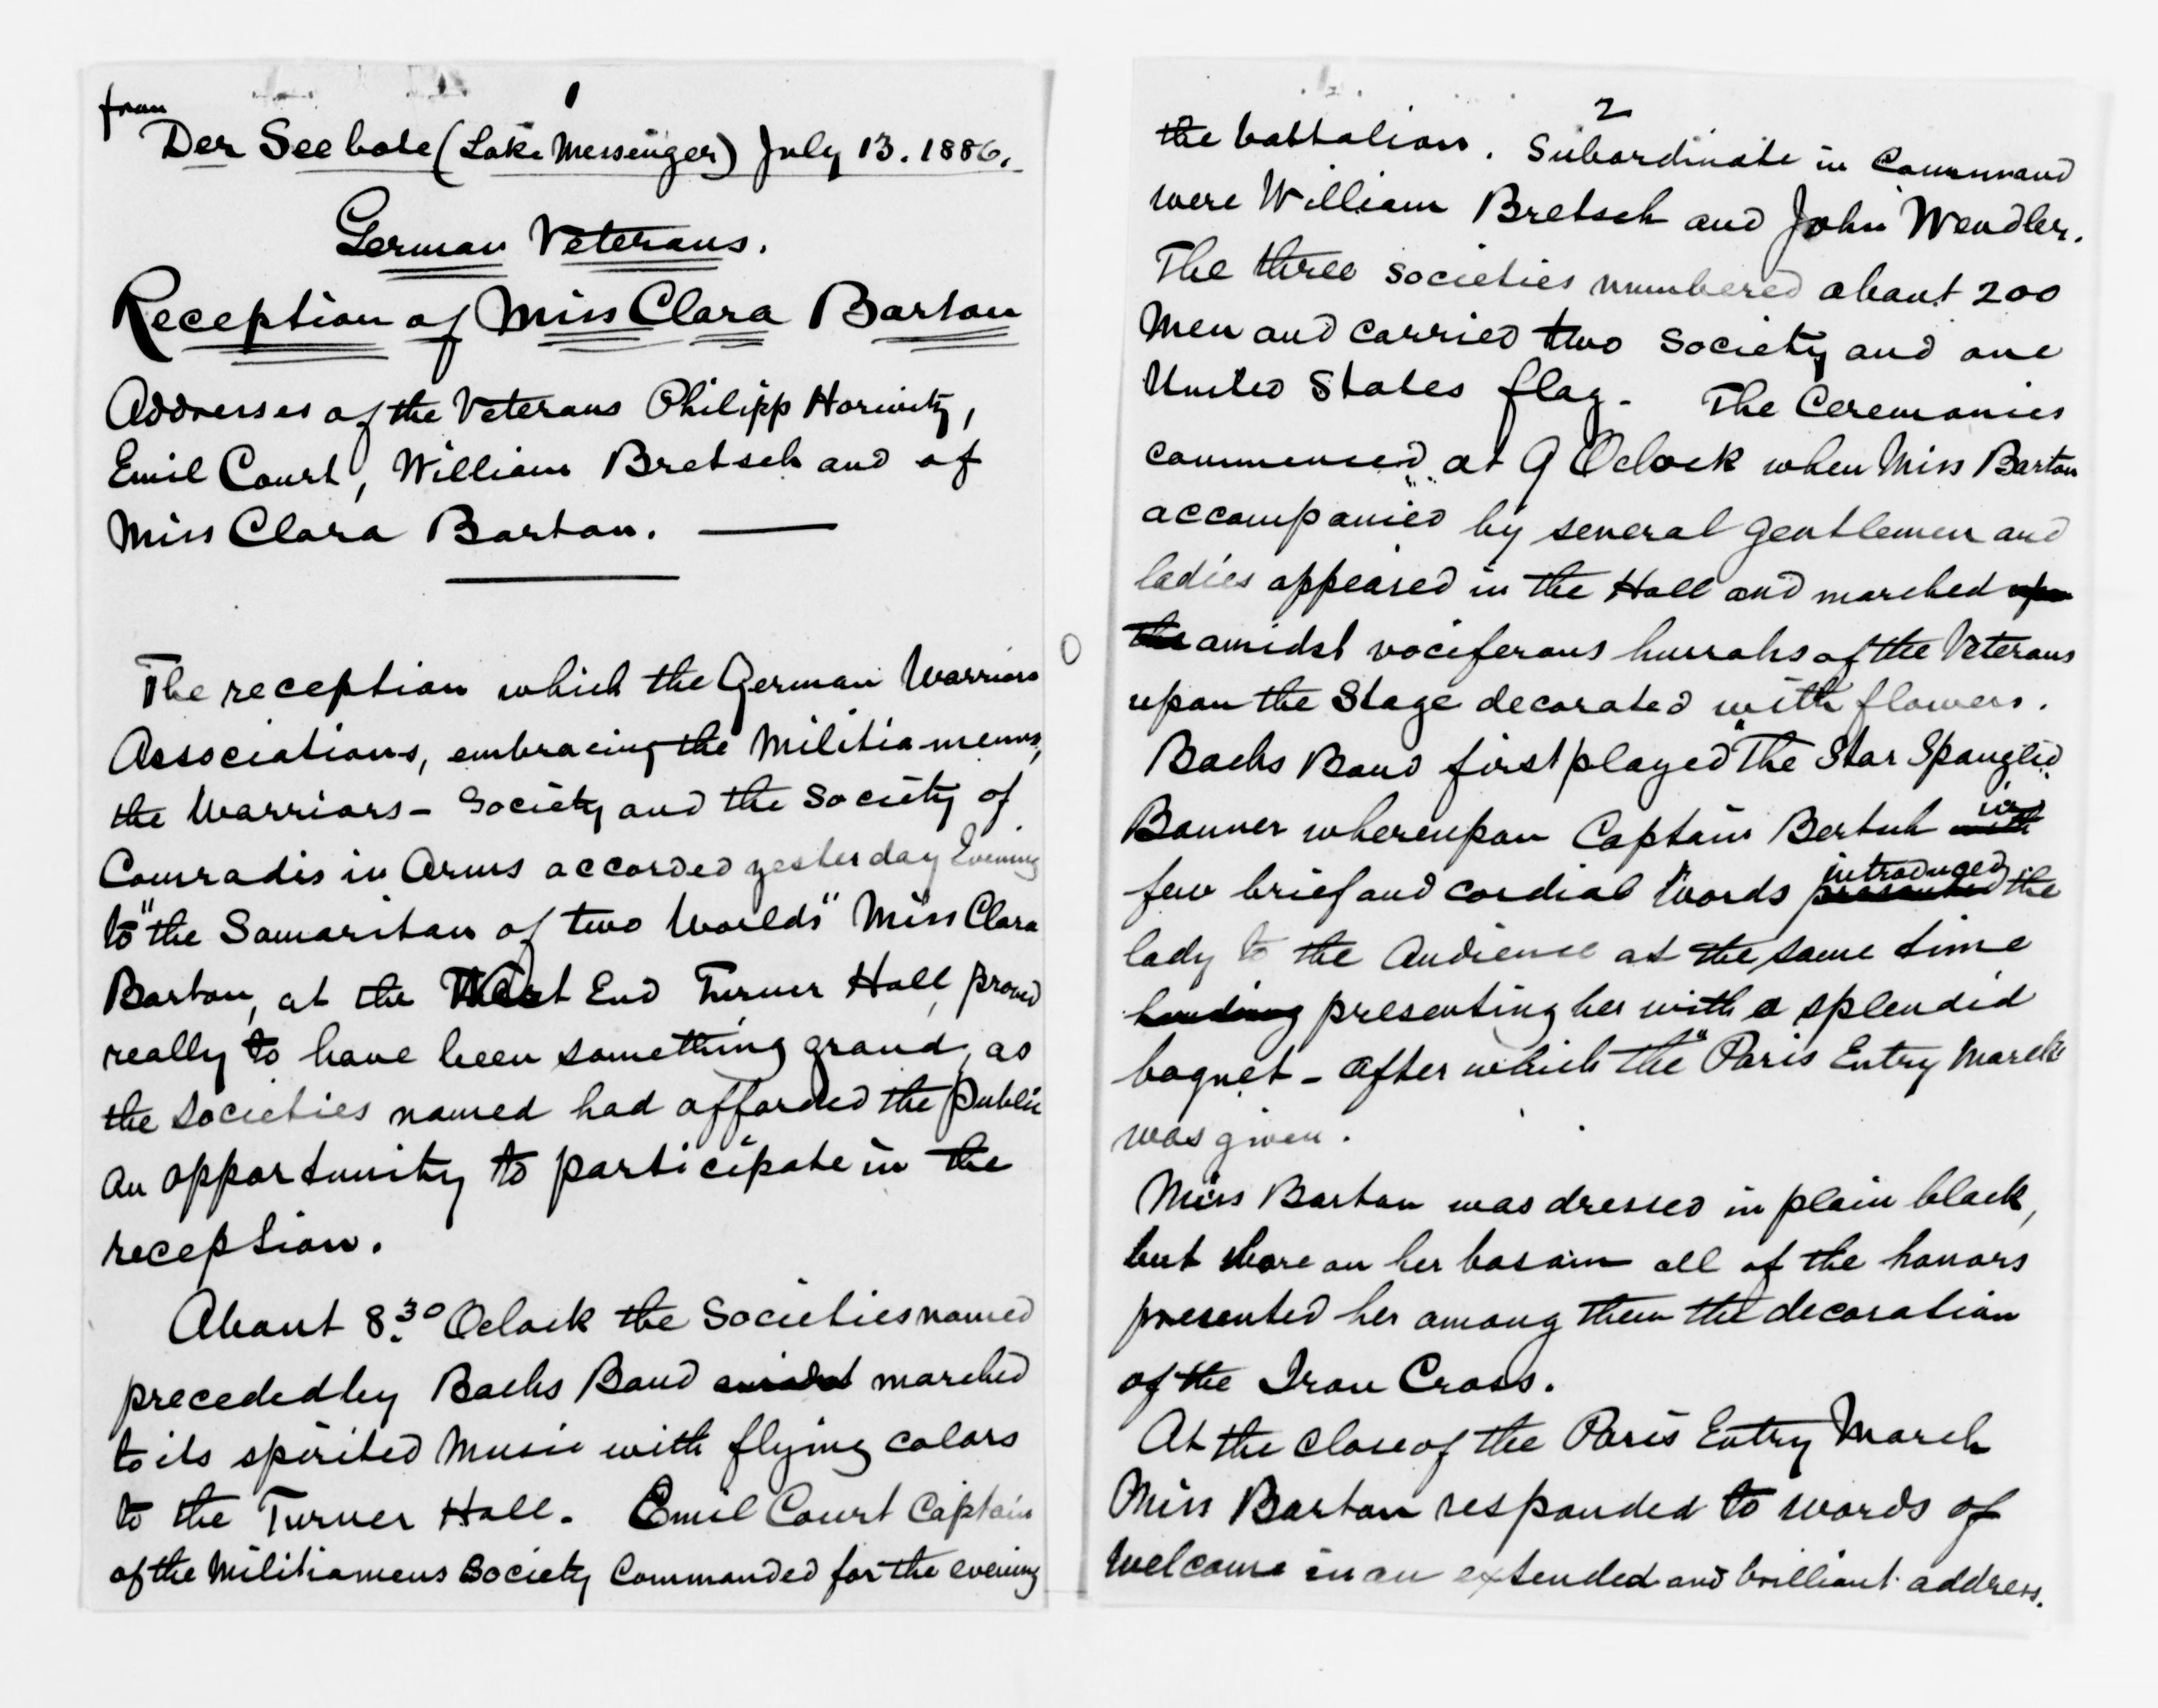 1
from
Der Seebote (Lake Messenger) July 13. 1886.
German Veterans.
Reception of Miss Clara Barton
Addresses of the Veterans Philipp Horwitz,
Emil Court, William Bretsch and of
Miss Clara Barton. —
The reception which the German Warriors
Associations, embracing the Militia-menns,
the Warriors - Society and the Society of
Comrades in Arms accorded yesterday Evening
to "the Samaritan of two Worlds" Miss Clara
Barton, at the West End Turner Hall, proved
really to have been something grand, as
the societies named had afforded the public
an opportunity to participate in the
reception.
About 8.30 Oclock the Societies named
preceded by Bachs Band amidst marched
to its spirited Music with flying colors
to the Turner Hall. Emil Court Captain
of the Militiamens Society Commanded for the evening
2
the battalion. Subordinate in Command
were William Bretsch and John Wendler.
The three societies numbered about 200
Men and carried two Society and one
United States flag. The Ceremonies
commenced at 9 Oclock when Miss Barton
accompanied by several gentlemen and
ladies appeared in the Hall and marched upon
the amidst vociferous hurrahs of the Veterans
upon the Stage decorated with flowers.
Bachs Band first played "The Star Spangled
Banner whereupon Captain Bertuh with in
few brief and cordial words presented introduced the
lady to the Audience at the same time
handing presenting her with a splendid
boquet - after which the "Paris Entry March
was given.
Miss Barton was dressed in plain black,
but wore on her bosom all of the honors
presented her among them the decoration
of the Iron Cross.
At the close of the Paris Entry March
Miss Barton responded to words of
welcome in an extended and brilliant address.